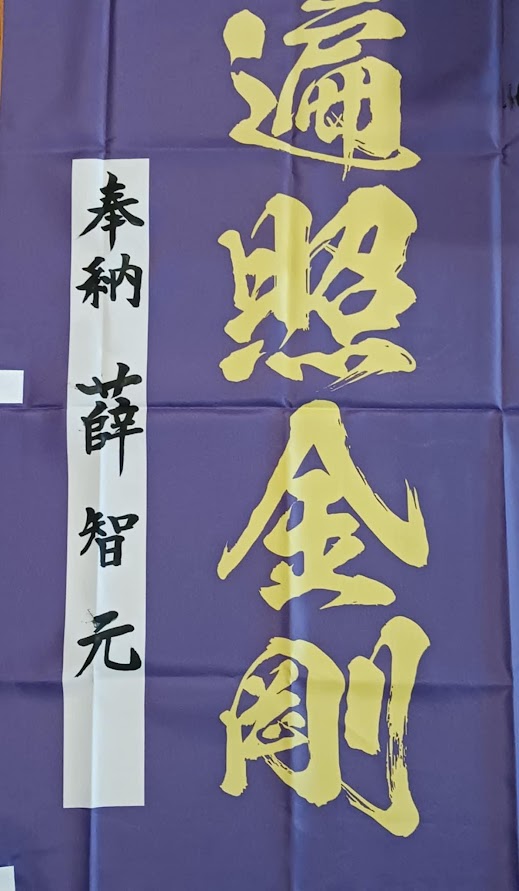 遍照金剛
奉納 薛智元